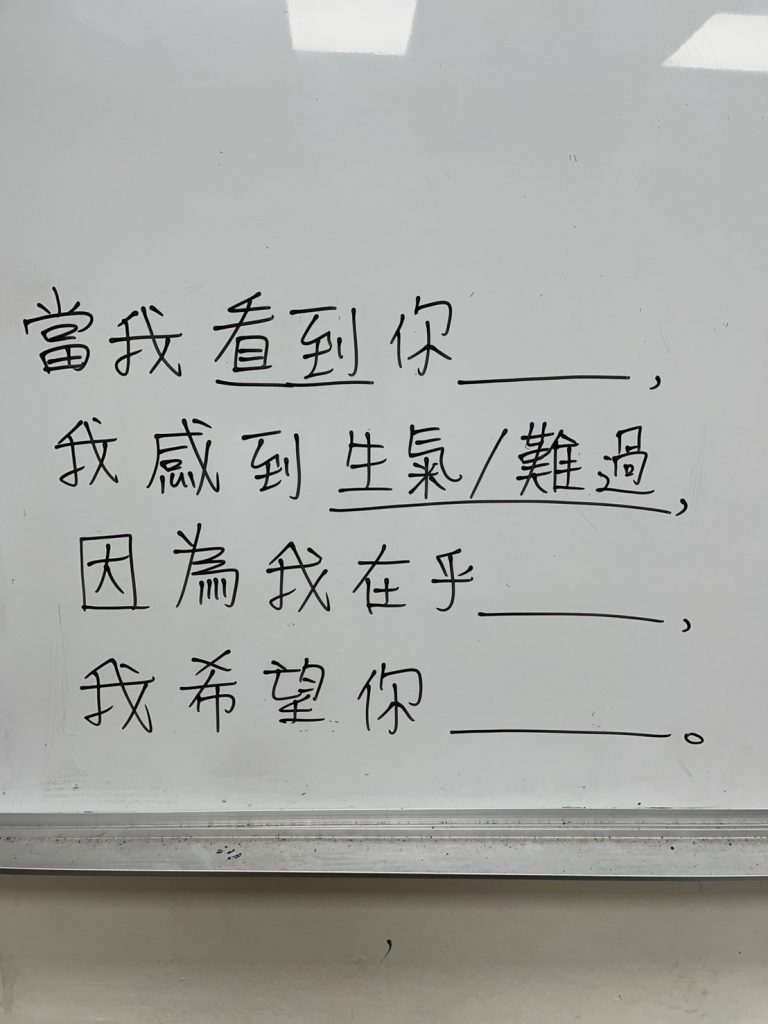 當我看到你______，
我感到生氣/難過，
因為我在乎______，
我希望你______。